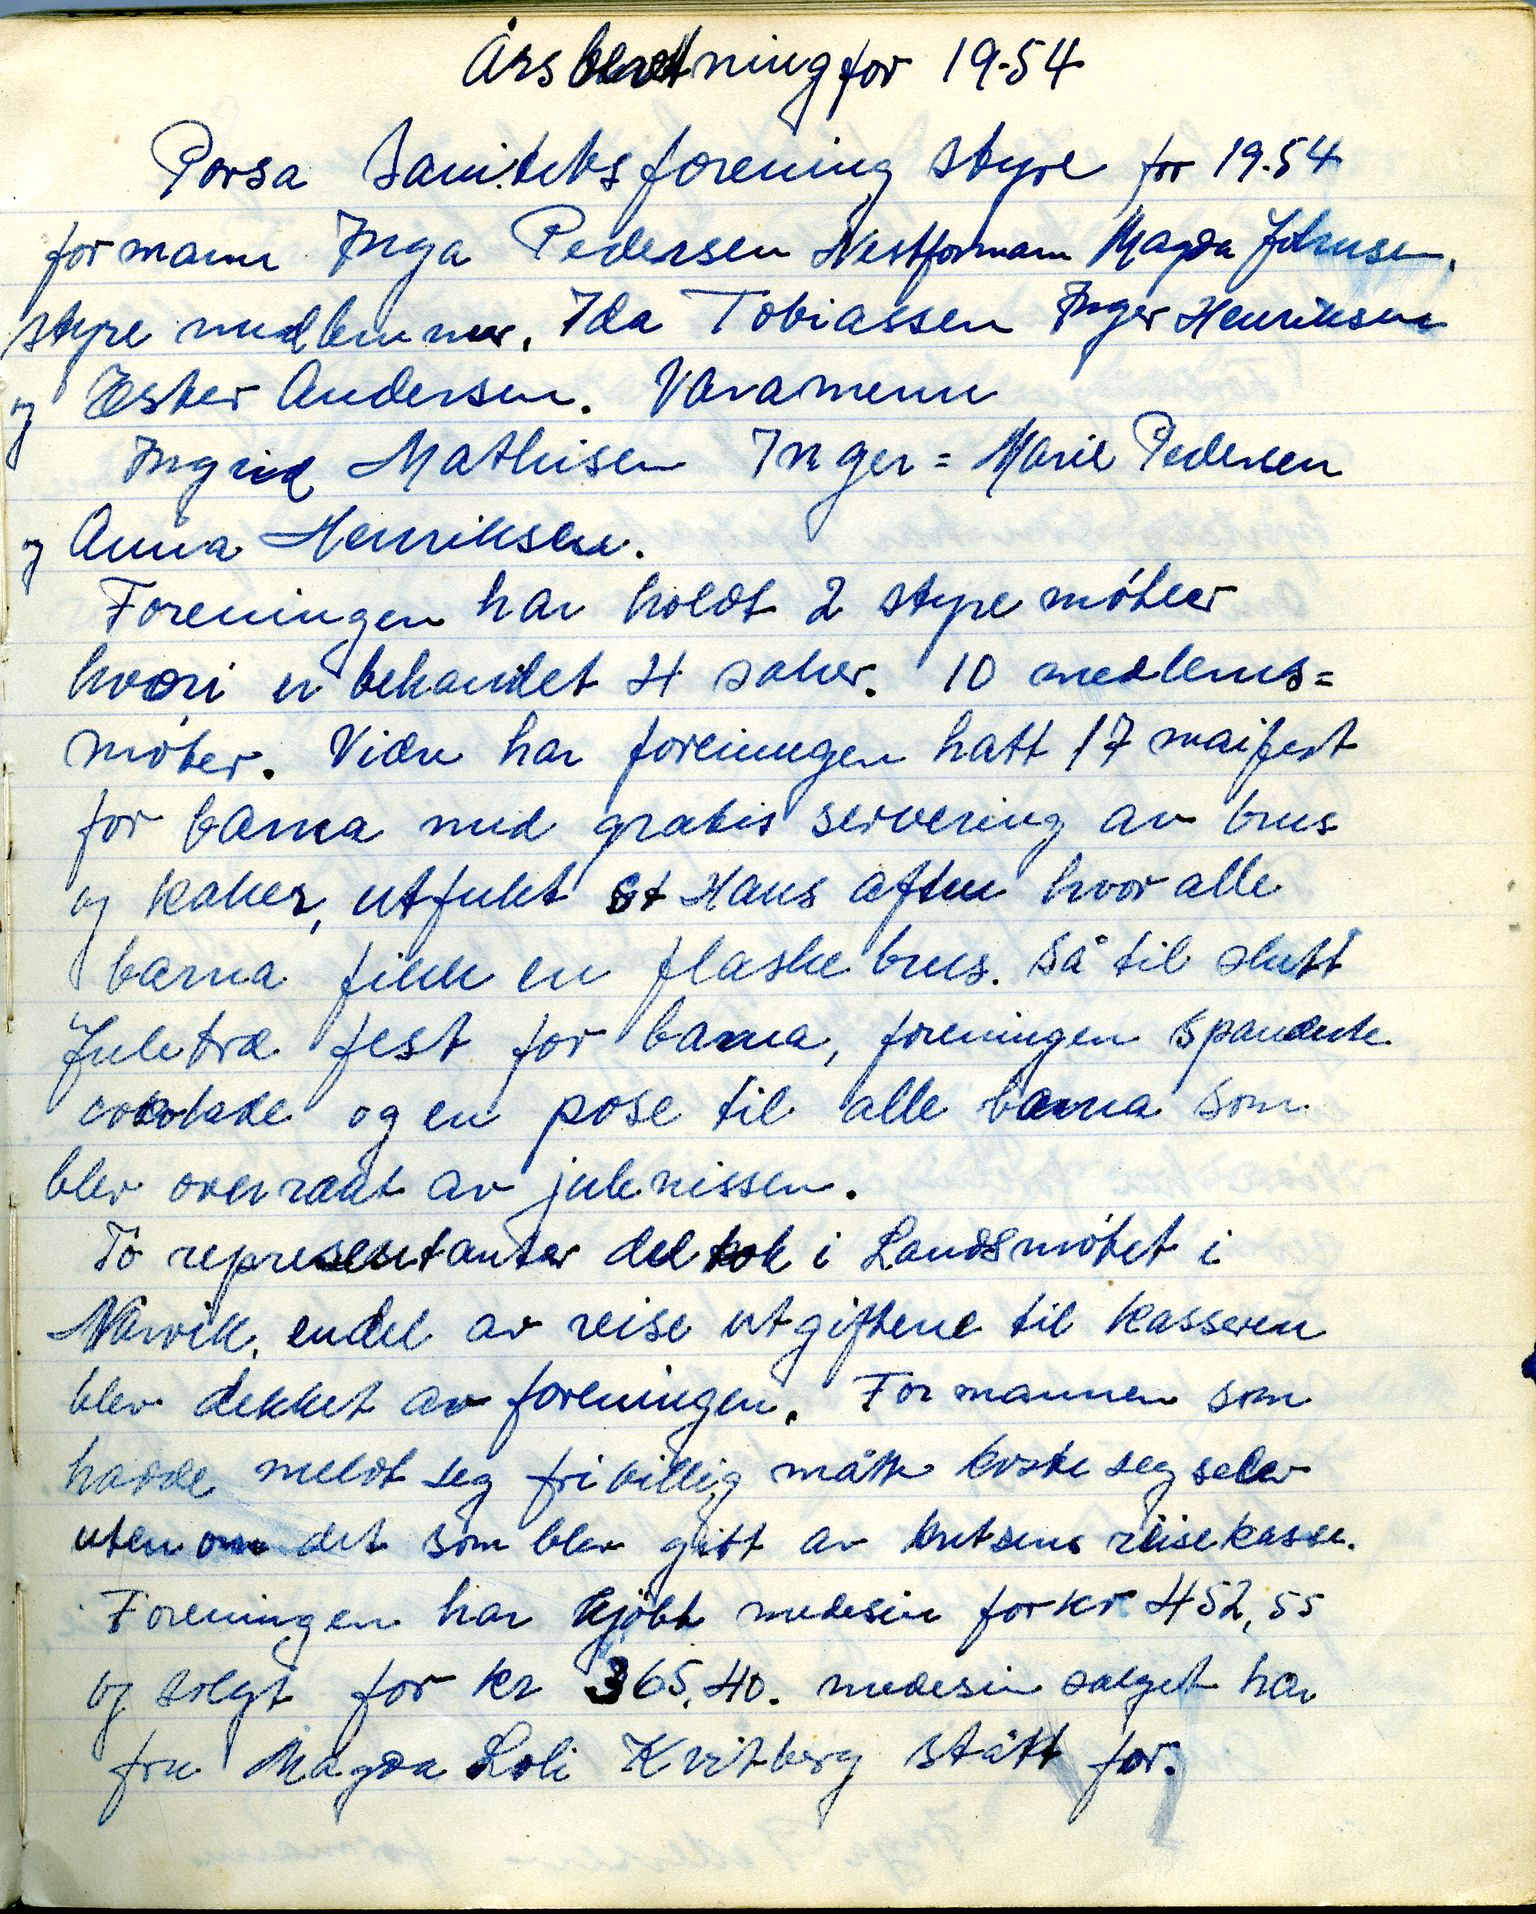 Årsberetning for 19.54
Porsa Sanitetsforening styre for 19.54
formann Inga Pedersen Nestformann Magda Johnsen.
styre medlemmer, Ida Tobiassen Inger Henriksen
og Ester Andersen. Varamenn
Ingrid Mathisen Inger=Marie Pedersen
og Anna Henriksen.
Foreningen har holdt 2 styre møter
hvori er behandlet 4 saker. 10 medlems=
møter. Vidre har foreningen hatt 17 maifest
for barna med gratis servering av brus
og kaker, utflukt St Hans aften hvor alle
barna fikk en flaske brus. Så til slutt
Juletre fest for barna, foreningen spanderte
cokolade og en pose til alle barna som
blev overrakt av julenissen.
To representanter deltok i Landsmøtet i
Narvik, endel av reise utgiftene til kasseren
blev dekket av foreningen. Formannen som
hadde meldt seg frivillig måtte koste seg selv
utenom det som blev gitt av kretsens reisekasse.
Foreningen har kjøbt medesin for kr 452,55
og solgt for kr 365,40. medesin salget har
fru Magda Loli Kvitberg stått for.